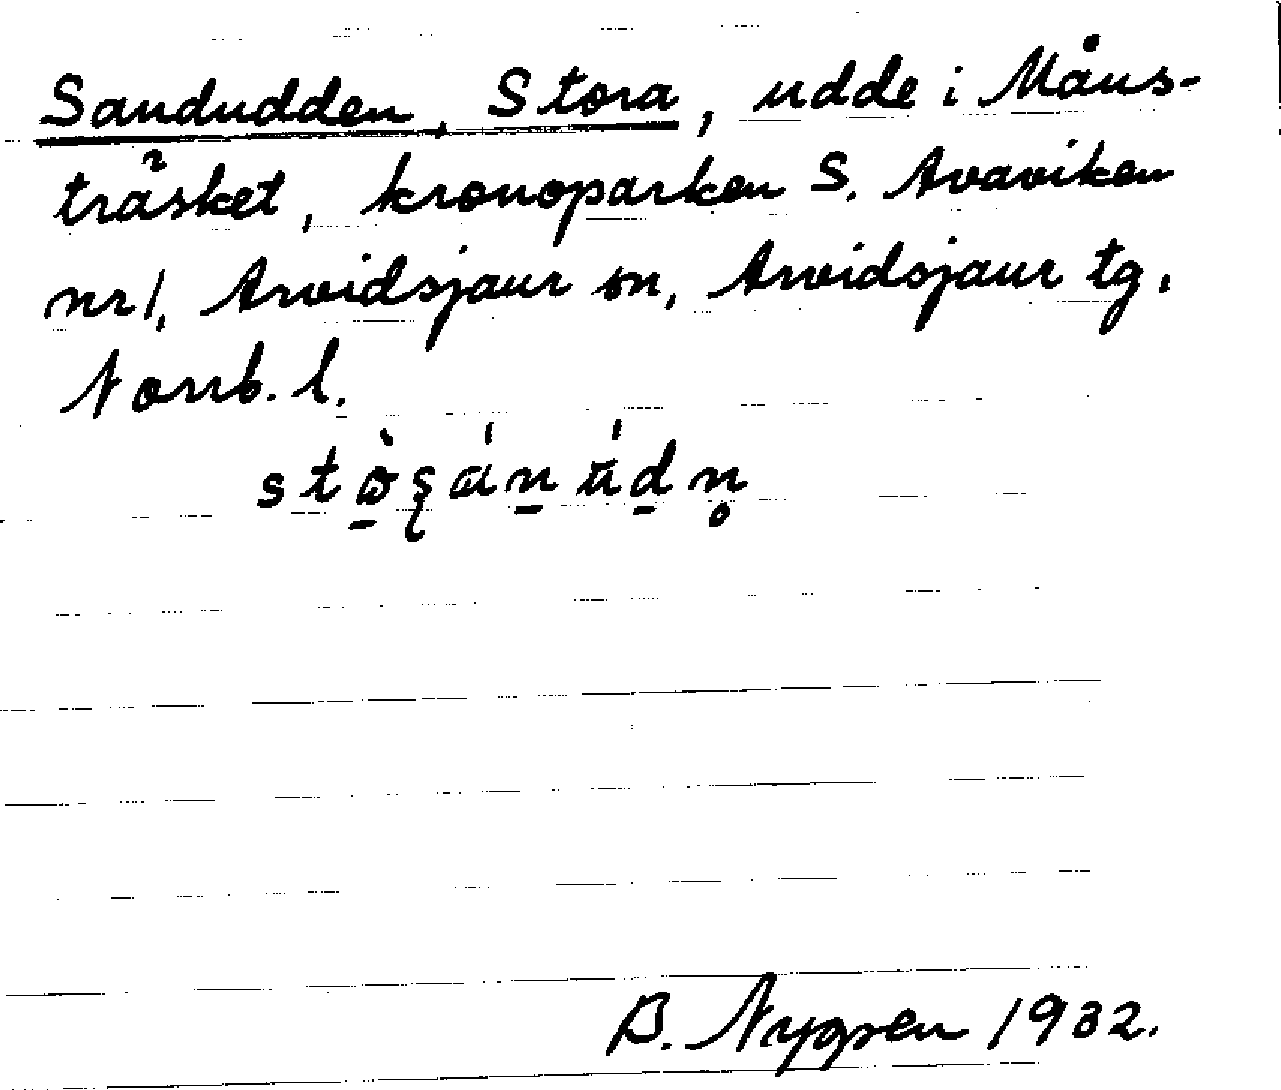 Sandudden, Stora, udde i Måns-
träsket, kronoparken S. Avaviken
nr 1, Arvidsjaur sn, Arvidsjaur tg.
Norrb. l.
B. Nygren 1932.